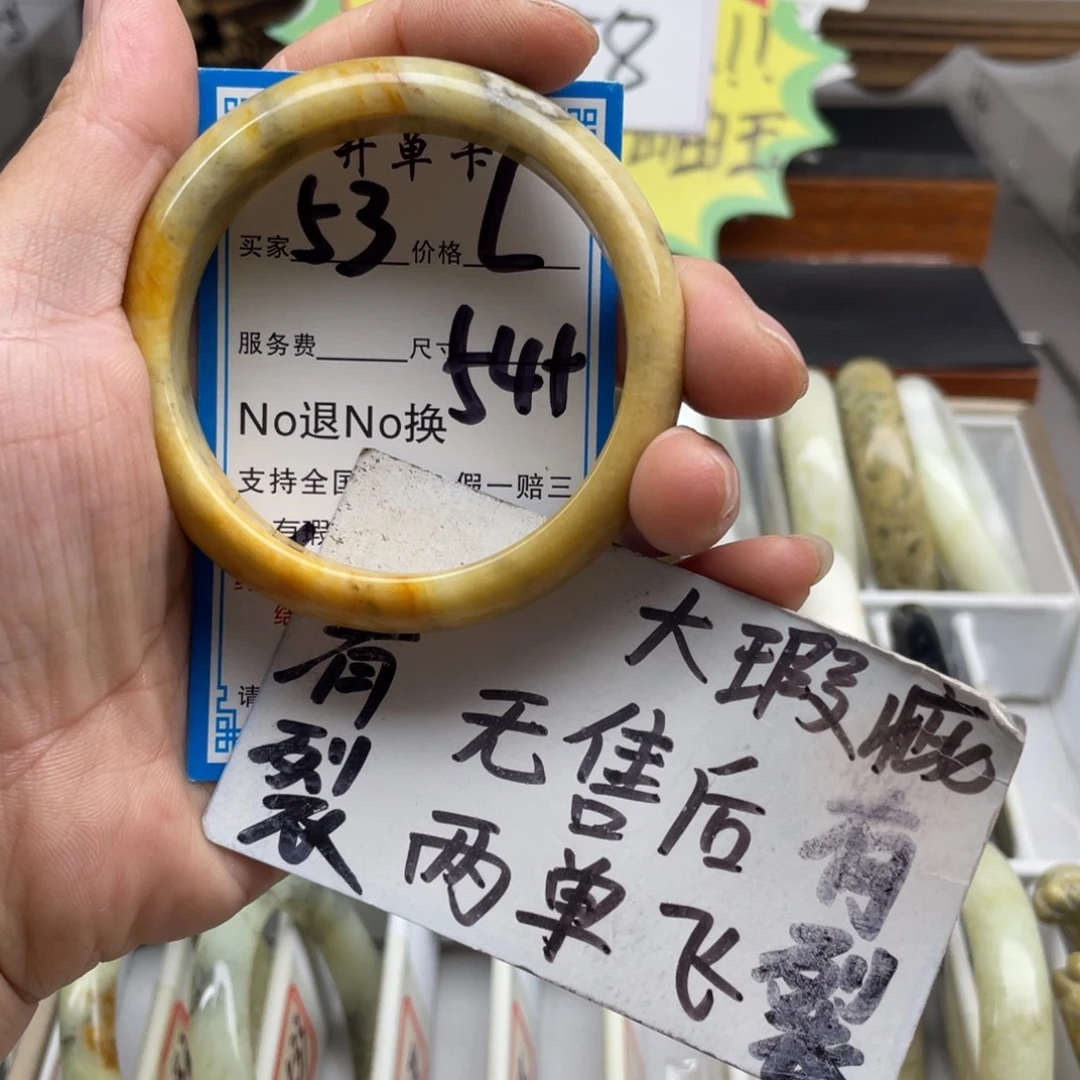 8
!!
开单卡
买家 53 价格 L
服务费 尺寸 54+
No退No换
支持全国 假一赔三
有瑕
结
请
有裂
大瑕疵
无售后
两单飞
有裂